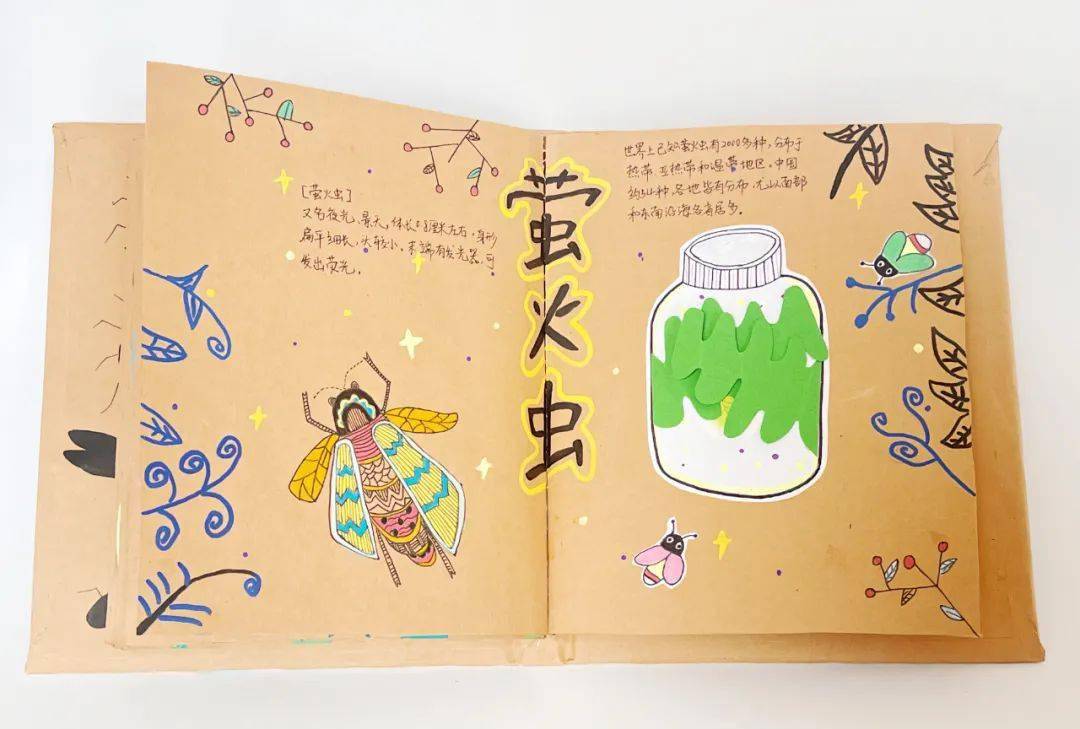 [萤火虫]
又名夜光、景天,体长0.8厘米左右,身形
扁平细长,头较小,末端有发光器,可
发出荧光。
萤火虫
世界上已知萤火虫有2000多种,分布于
热带、亚热带和温带地区。中国
约54种,各地皆有分布,尤以西部
和东南沿海各省居多。